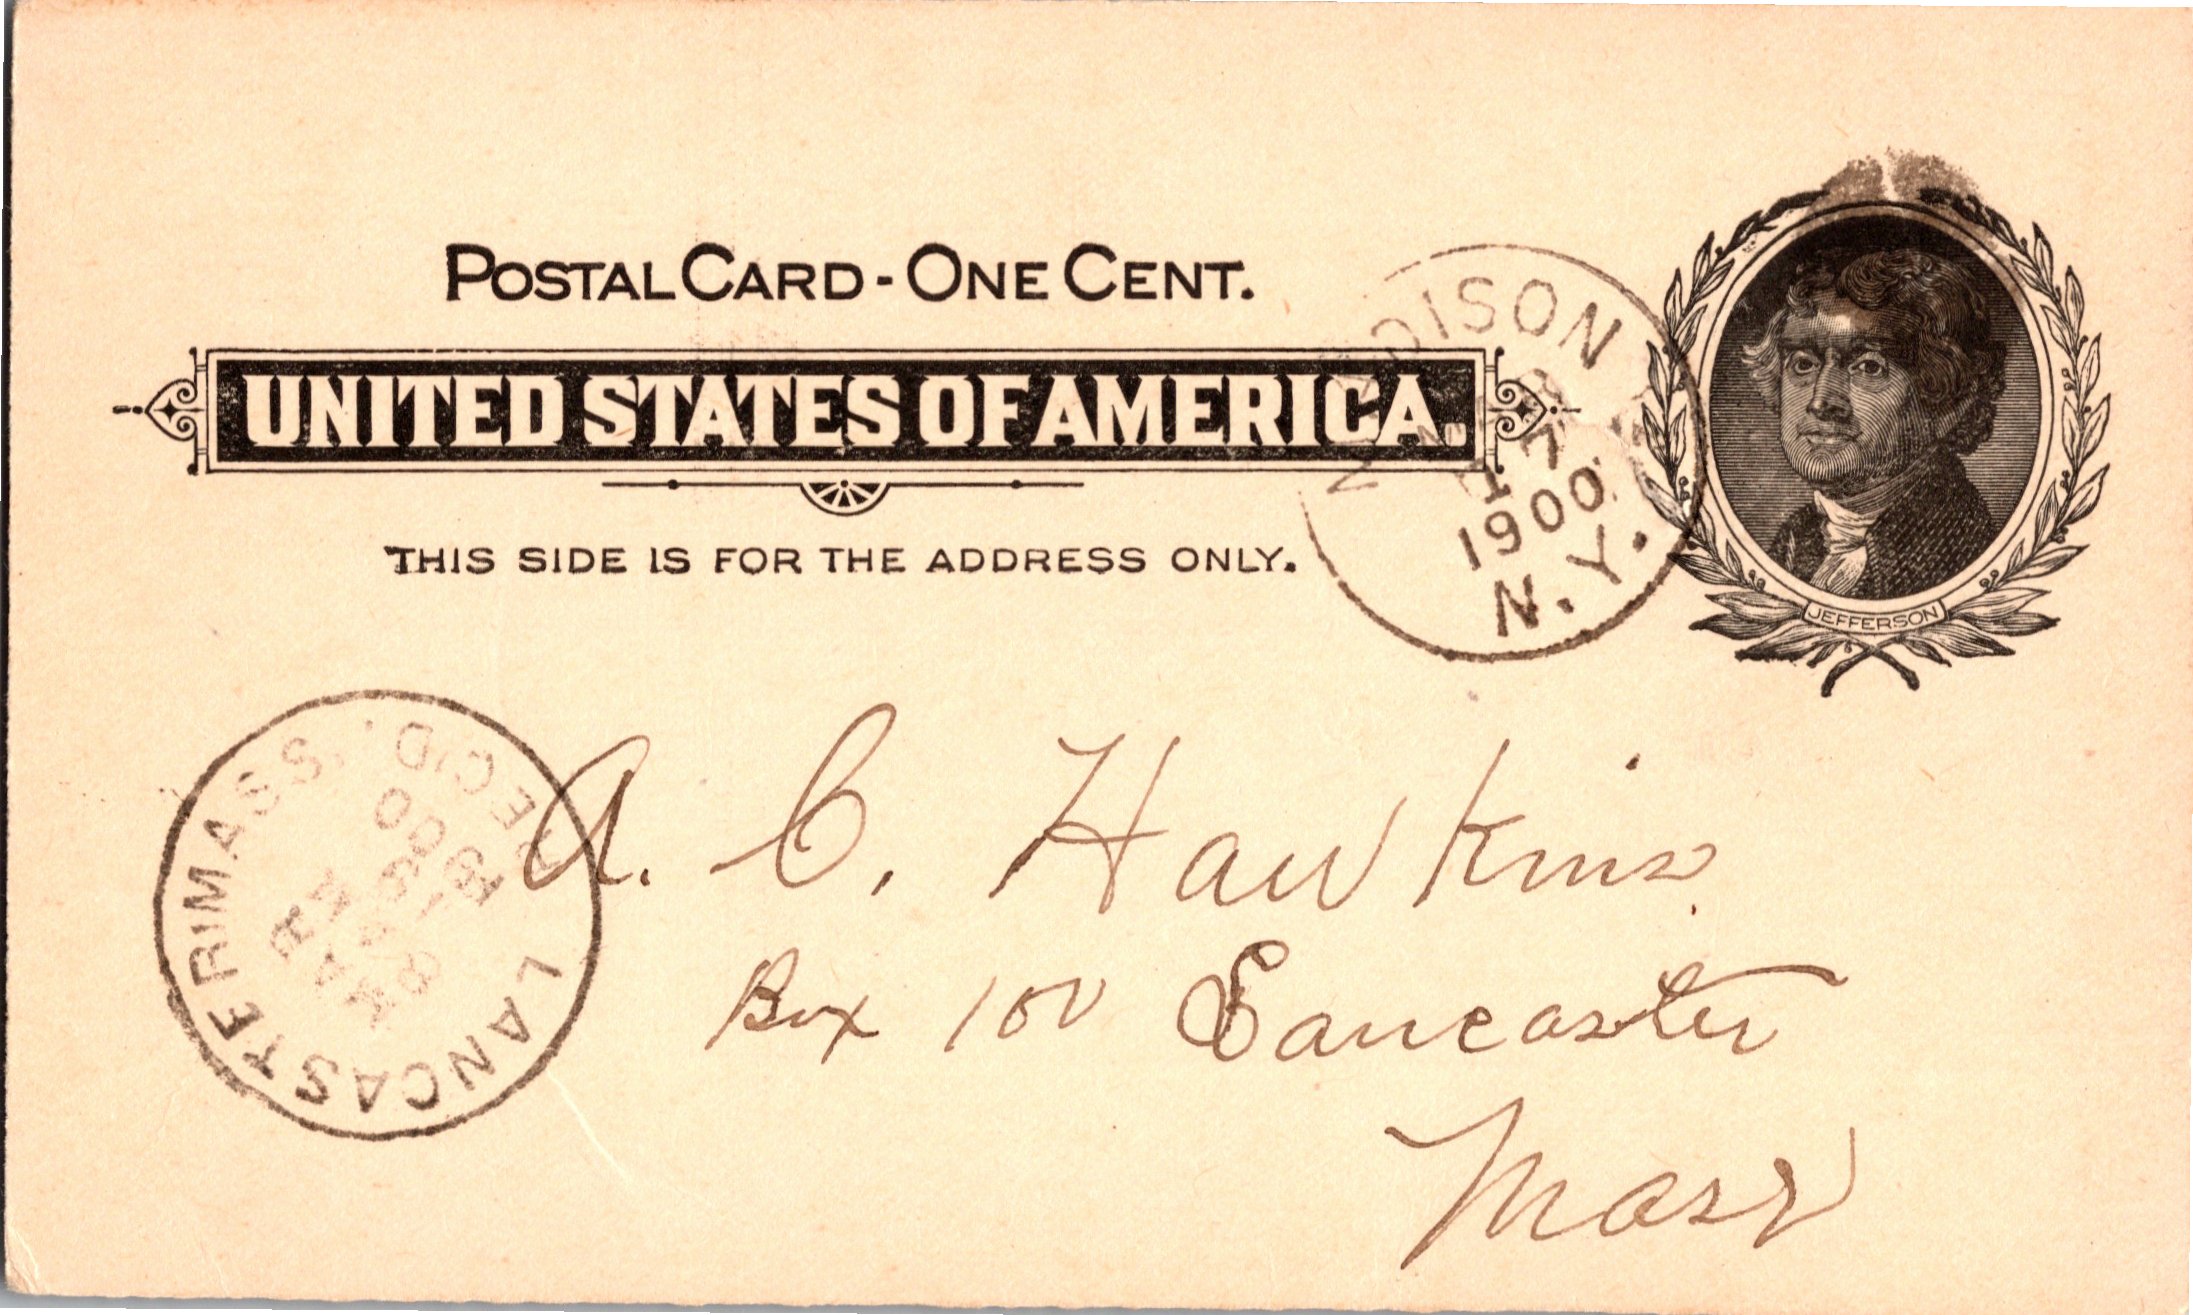 POSTAL CARD - ONE CENT.
UNITED STATES OF AMERICA.
THIS SIDE IS FOR THE ADDRESS ONLY.
JEFFERSON
MADISON
7
1900
N. Y.
LANCASTER MASS.
REC'D.
MAR
8
00
A. C. Hawkins
Box 100 Lancaster
Mass